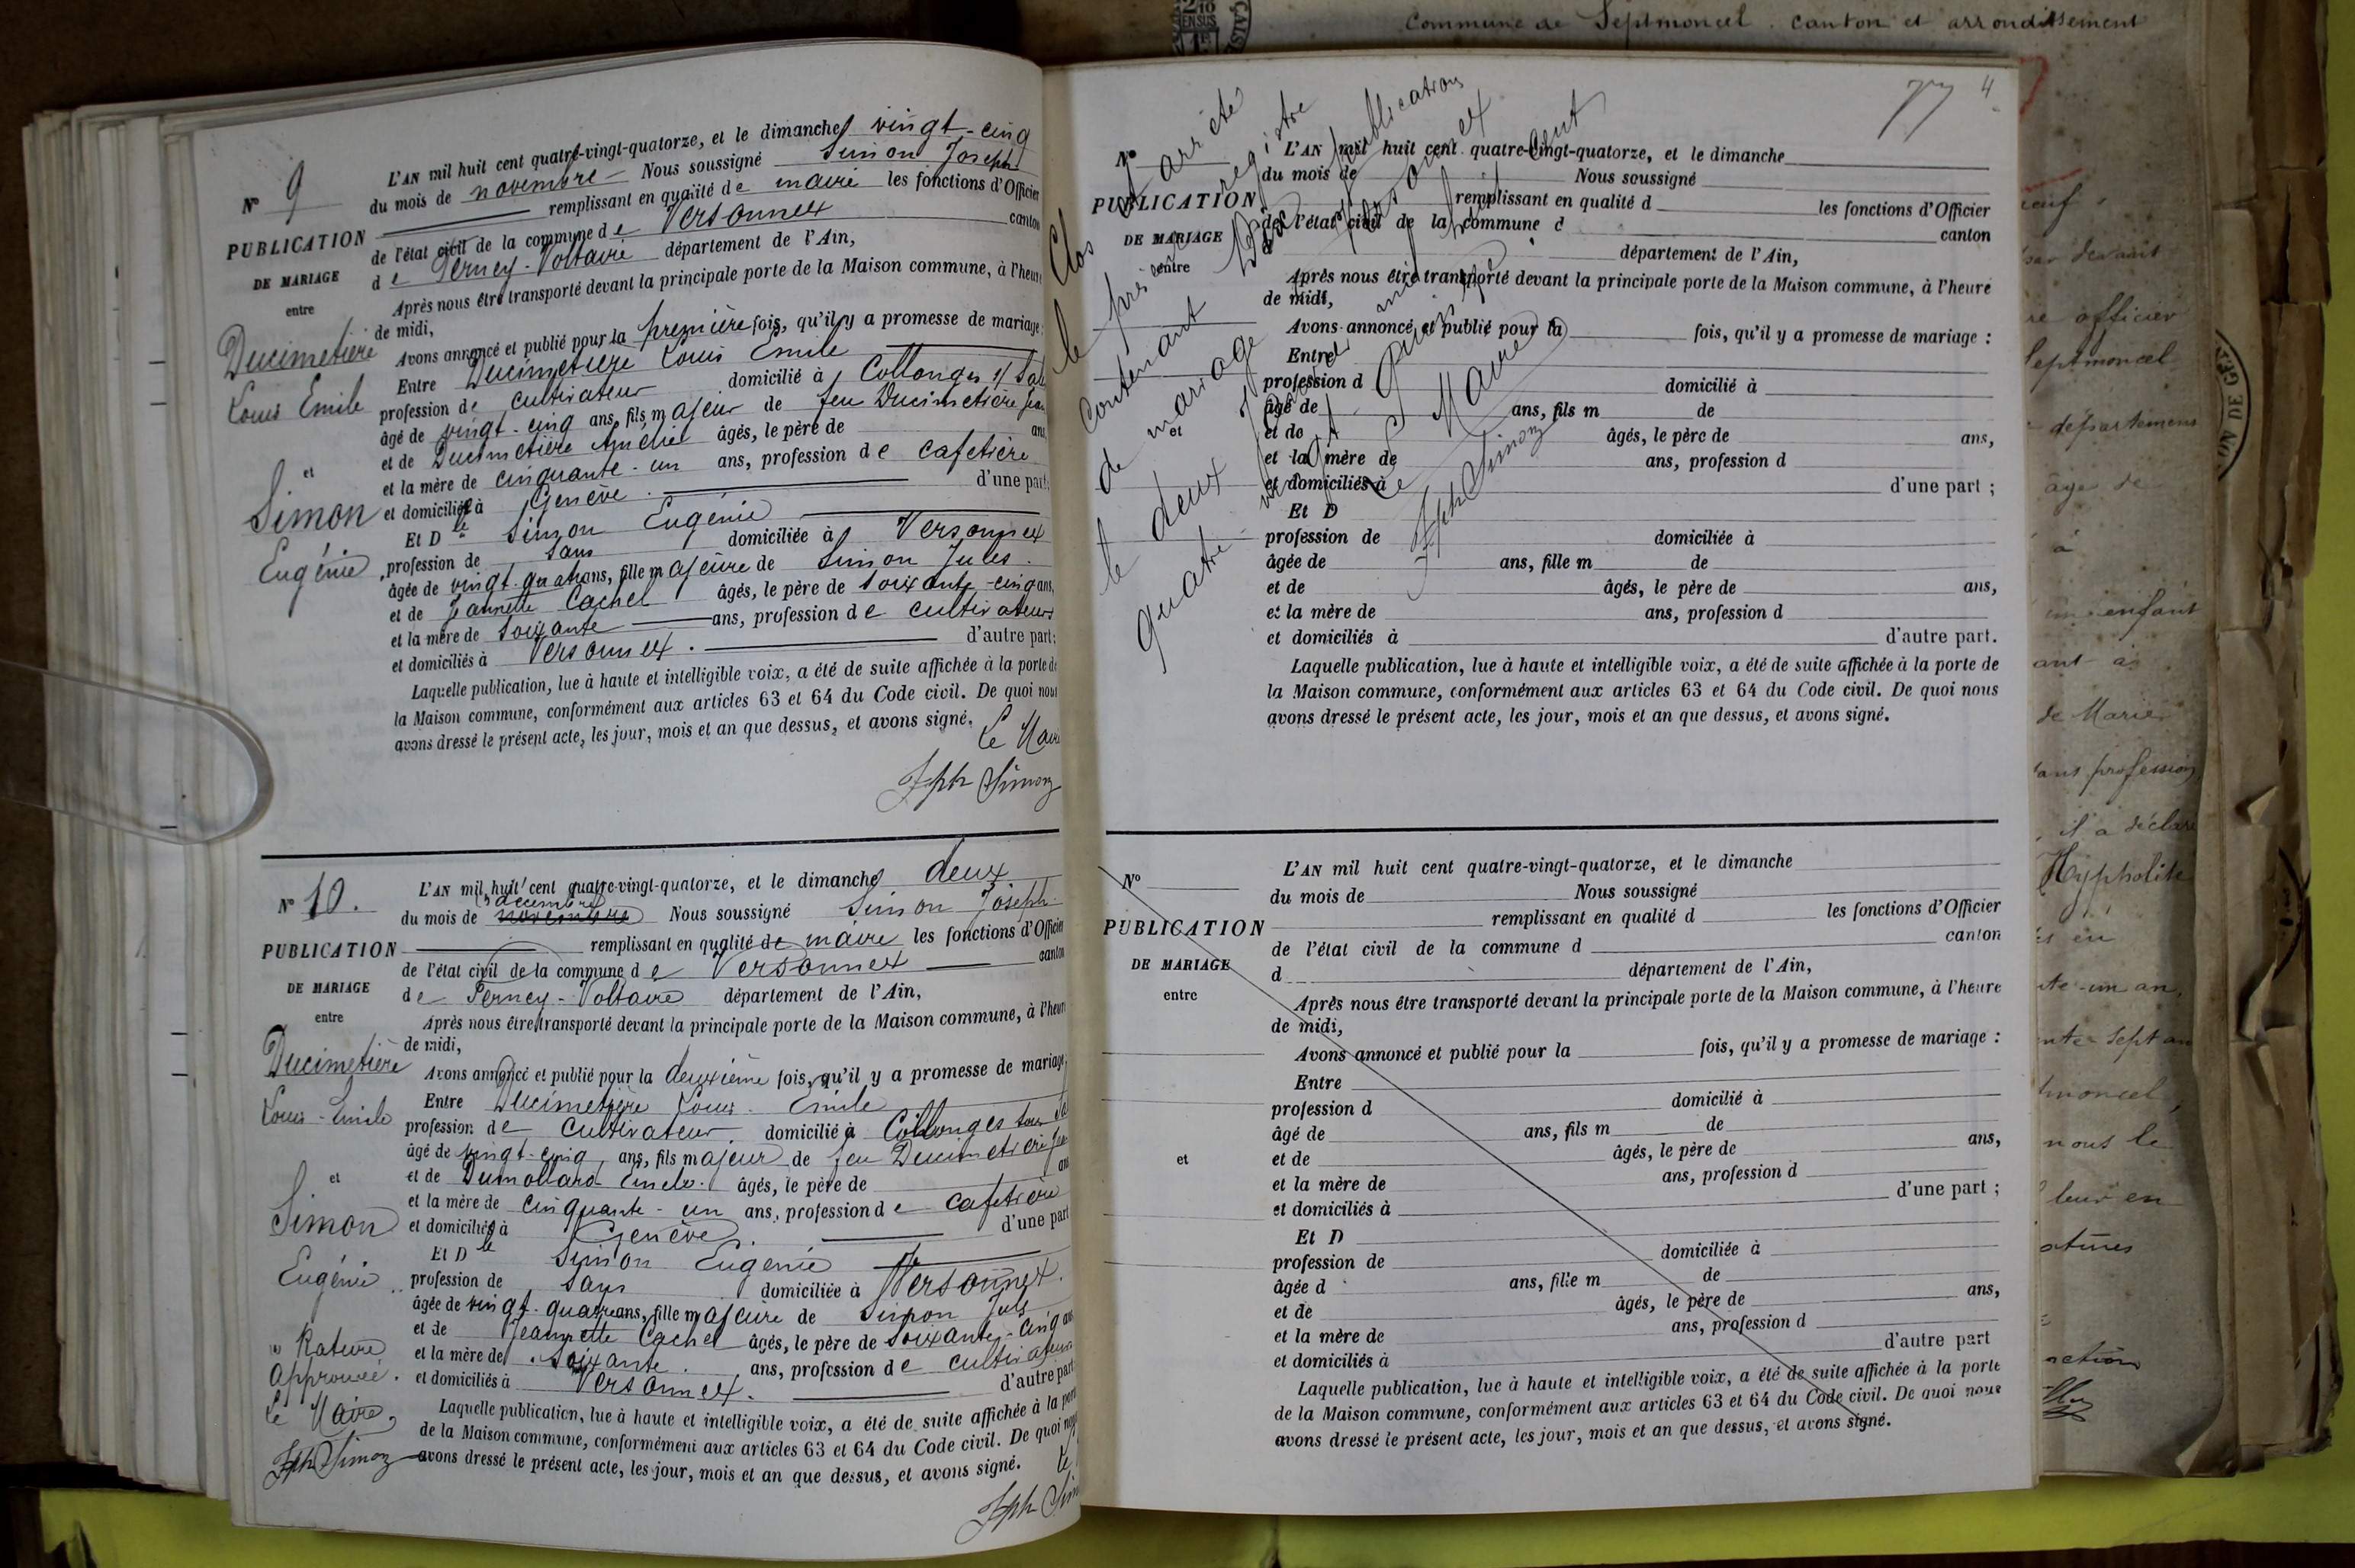 Commune de Septmoncel. canton et arrondissement
N° 9
PUBLICATION
DE MARIAGE
entre
Ducimetière
Louis Emile
et
Simon
Eugénie
L'AN mil huit cent quatre-vingt-quatorze, et le dimanche vingt-cinq
du mois de novembre Nous soussigné Simon Joseph
remplissant en qualité de maire les fonctions d'Officier
de l'état civil de la commune de Versonnex canton
de Ferney-Voltaire département de l'Ain,
Après nous être transporté devant la principale porte de la Maison commune, à l'heure
de midi,
Avons annoncé et publié pour la première fois, qu'il y a promesse de mariage :
Entre Ducimetière Louis Emile
profession de cultivateur domicilié à Collonges s/
âgé de vingt-cinq ans, fils majeur de feu Ducimetière
et de Ducimetière âgés, le père de ans,
et la mère de cinquante-un ans, profession de cafetière
et domiciliés à Genève. d'une part;
Et Dlle Simon Eugénie
profession de sans domiciliée à Versonnex
âgée de vingt-quatre ans, fille majeure de Simon Jules.
et de Jeannette Cachel âgés, le père de soixante-cinq ans,
et la mère de soixante ans, profession de cultivateurs
et domiciliés à Versonnex. d'autre part;
Laquelle publication, lue à haute et intelligible voix, a été de suite affichée à la porte de
la Maison commune, conformément aux articles 63 et 64 du Code civil. De quoi nous
avons dressé le présent acte, les jour, mois et an que dessus, et avons signé.
Le Maire
Jph Simon
N° 10.
PUBLICATION
DE MARIAGE
entre
Ducimetière
Louis-Emile
et
Simon
Eugénie
" Rature
approuvé.
Le Maire,
Jph Simon
L'AN mil huit cent quatre-vingt-quatorze, et le dimanche deux
décembre
du mois de novembre Nous soussigné Simon Joseph
remplissant en qualité de maire les fonctions d'Officier
de l'état civil de la commune de Versonnex canton
de Ferney-Voltaire département de l'Ain,
Après nous être transporté devant la principale porte de la Maison commune, à l'heure
de midi,
Avons annoncé et publié pour la deuxième fois, qu'il y a promesse de mariage
Entre Ducimetière Louis-Emile
profession de cultivateur. domicilié à Collonges sous
âgé de vingt-cinq ans, fils majeur de feu Ducimetière
et de Dumollard âgés, le père de ans
et la mère de cinquante-un ans, profession de cafetière
et domiciliés à Genève. d'une part
Et Dlle Simon Eugénie
profession de sans domiciliée à Versonnex.
âgée de vingt-quatre ans, fille majeure de Simon Juls
et de Jeannette Cachel âgés, le père de soixante-cinq ans
et la mère de soixante. ans, profession de cultivateurs
et domiciliés à Versonnex. d'autre part
Laquelle publication, lue à haute et intelligible voix, a été de suite affichée à la porte
de la Maison commune, conformément aux articles 63 et 64 du Code civil. De quoi nous
avons dressé le présent acte, les jour, mois et an que dessus, et avons signé.
Jph Sim
77 4
Clos et arrêté
le présent registre
contenant publication
de mariage Versonnex
le deux
quatre-vingt-quatorze
Le Maire
Jph Simon
N°
PUBLICATION
DE MARIAGE
entre
et
L'AN mil huit cent quatre-vingt-quatorze, et le dimanche
du mois de Nous soussigné
remplissant en qualité d les fonctions d'Officier
de l'état civil de la commune d canton
d département de l'Ain,
Après nous être transporté devant la principale porte de la Maison commune, à l'heure
de midi,
Avons annoncé et publié pour la fois, qu'il y a promesse de mariage :
Entre
profession d domicilié à
âgé de ans, fils m de
et de âgés, le père de ans,
et la mère de ans, profession d
et domiciliés à d'une part ;
Et D
profession de domiciliée à
âgée de ans, fille m de
et de âgés, le père de ans,
et la mère de ans, profession d
et domiciliés à d'autre part.
Laquelle publication, lue à haute et intelligible voix, a été de suite affichée à la porte de
la Maison commune, conformément aux articles 63 et 64 du Code civil. De quoi nous
avons dressé le présent acte, les jour, mois et an que dessus, et avons signé.
N°
PUBLICATION
DE MARIAGE
entre
et
L'AN mil huit cent quatre-vingt-quatorze, et le dimanche
du mois de Nous soussigné
remplissant en qualité d les fonctions d'Officier
de l'état civil de la commune d canton
d département de l'Ain,
Après nous être transporté devant la principale porte de la Maison commune, à l'heure
de midi,
Avons annoncé et publié pour la fois, qu'il y a promesse de mariage :
Entre
profession d domicilié à
âgé de ans, fils m de
et de âgés, le père de ans,
et la mère de ans, profession d
et domiciliés à d'une part ;
Et D
profession de domiciliée à
âgée d ans, fille m de
et de âgés, le père de ans,
et la mère de ans, profession d
et domiciliés à d'autre part
Laquelle publication, lue à haute et intelligible voix, a été de suite affichée à la porte
de la Maison commune, conformément aux articles 63 et 64 du Code civil. De quoi nous
avons dressé le présent acte, les jour, mois et an que dessus, et avons signé.
par devant
officier
Septmoncel
département
âgé de
à
enfant
de Marie
sans profession
il a déclaré
Hypholite
un an,
sept an
nous le
leur en